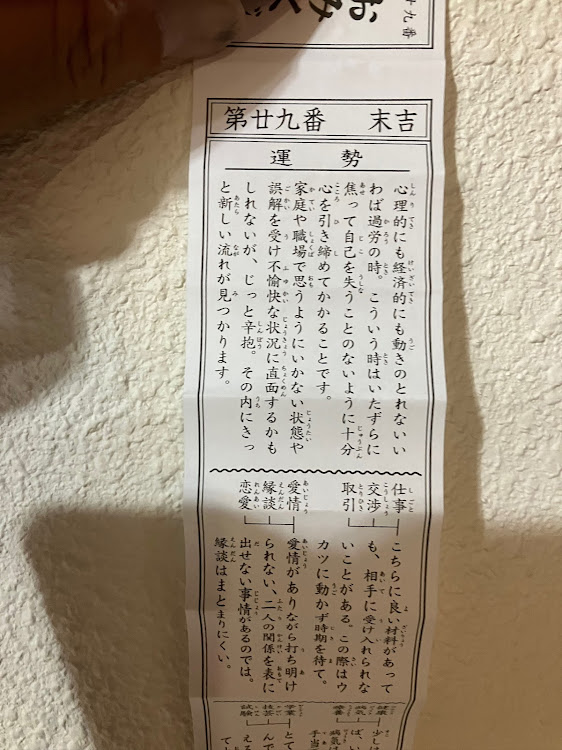 十九番
おみく
第廿九番 末吉
運勢
心理的にも経済的にも動きのとれないい
わば過労の時。こういう時はいたずらに
焦って自己を失うことのないように十分
心を引き締めてかかることです。
家庭や職場で思うようにいかない状態や
誤解を受け不愉快な状況に直面するかも
しれないが、じっと辛抱。その内にきっ
と新しい流れが見つかります。
仕事
交渉
取引
こちらに良い材料があって
も、相手に受け入れられな
いことがある。この際はウ
カツに動かず時期を待て。
愛情
縁談
恋愛
愛情がありながら打ち明け
られない、二人の関係を表に
出せない事情があるのでは。
縁談はまとまりにくい。
健康
病気
療養
少し
ば、い
病気は
手当
学業
技芸
試験
とて
んで
える